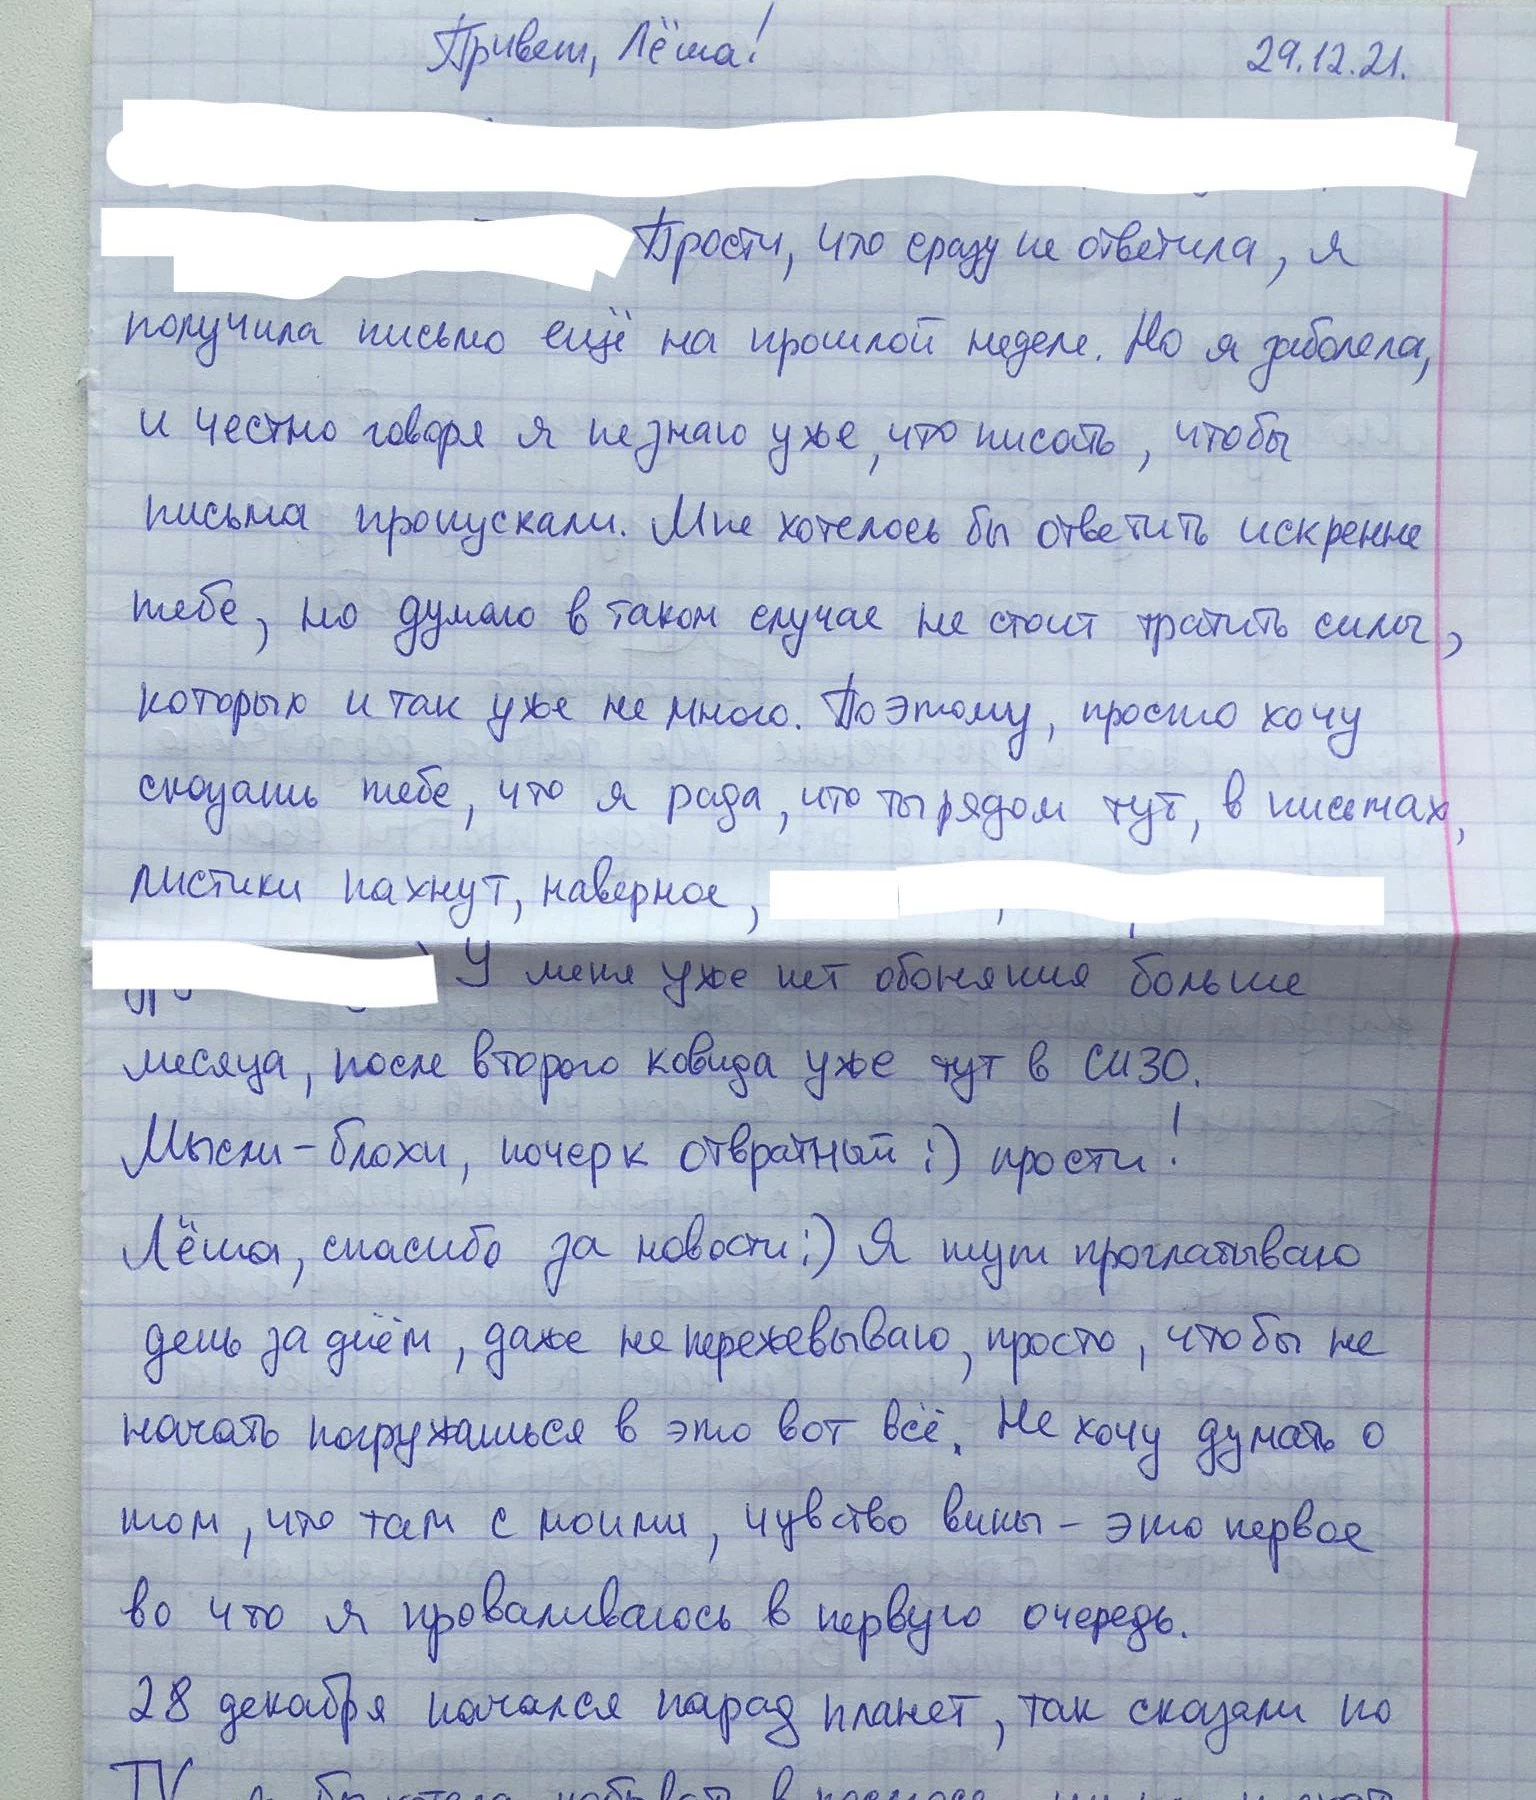 Привет, Лёша! 29.12.21.
Прости, что сразу не ответила, я
получила письмо ещё на прошлой неделе. Но я заболела,
и честно говоря я не знаю уже, что писать, чтобы
письма пропускали. Мне хотелось бы ответить искренне
тебе, но думаю в таком случае не стоит тратить силы,
которых и так уже не много. Поэтому, просто хочу
сказать тебе, что я рада, что ты рядом тут, в письмах,
листики пахнут, наверное,
У меня уже нет обоняния больше
месяца, после второго ковида уже тут в СИЗО.
Мысли-блохи, почерк отвратный :) прости!
Лёша, спасибо за новости :) Я тут проглатываю
день за днём, даже не пережевываю, просто, чтобы не
начать погружаться в это вот всё. Не хочу думать о
том, что там с моими, чувство вины - это первое
во что я проваливаюсь в первую очередь.
28 декабря начался парад планет, так сказали по
TV